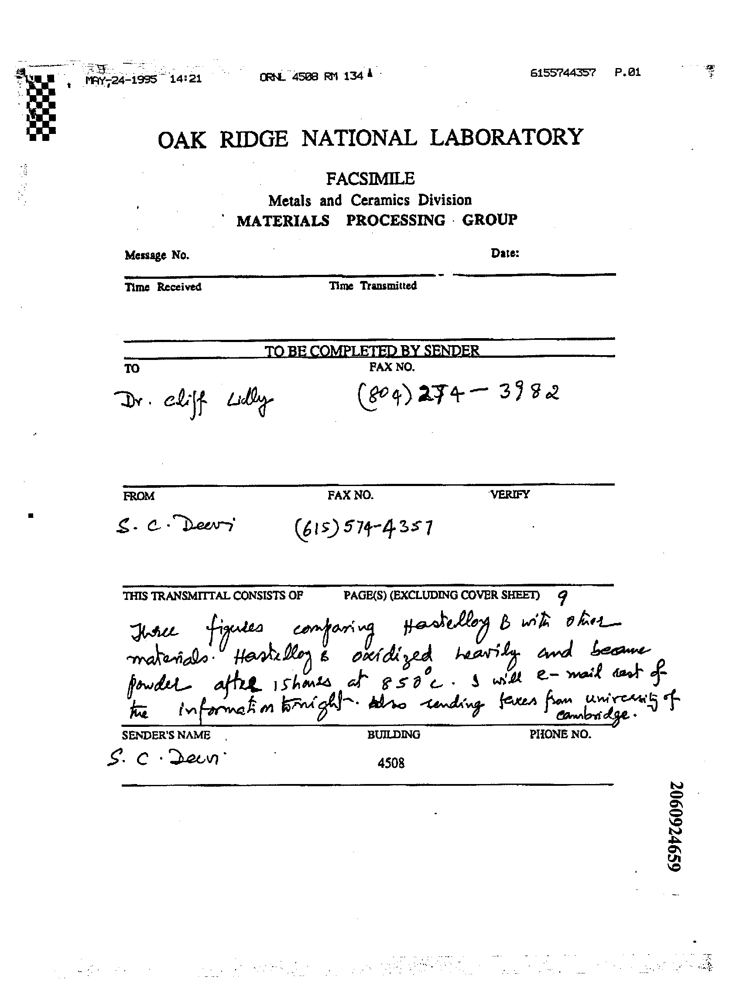 MAY-24-1995 14:21 ORNL 4508 RM 134 A 6155744357 P.01
OAK RIDGE NATIONAL LABORATORY
FACSIMILE
Metals and Ceramics Division
MATERIALS PROCESSING GROUP
Message No. Date:
Time Received Time Transmitted
TO BE COMPLETED BY SENDER
TO FAX NO.
Dr. Cliff Lilly (804) 274-3982
FROM FAX NO. VERIFY
S. C. Deevi (615) 574-4357
THIS TRANSMITTAL CONSISTS OF PAGE(S) (EXCLUDING COVER SHEET) 9
Three figures comparing Hastelloy B with other
materials. Hastelloy B oxidized heavily and became
powder after 15 hours at 850°C. I will e-mail rest of
the information tonight. Also sending faxes from university of
cambridge.
SENDER'S NAME BUILDING PHONE NO.
S. C. Deevi 4508
2060924659